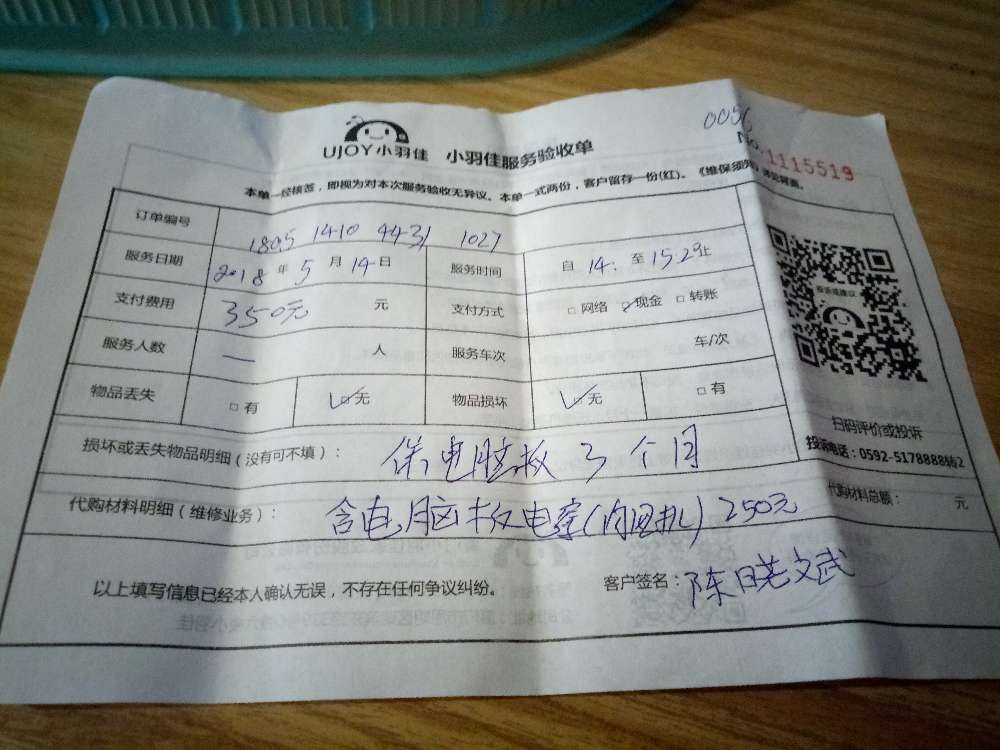 005
UJOY小羽佳 小羽佳服务验收单
No.1115519
本单一经核签，即视为对本次服务验收无异议。本单一式两份，客户留存一份(红)。《维保须知》详见背面。
订单编号 1805 1410 4431 1027
服务日期 2018年5月14日 服务时间 自14:至15:29止
支付费用 350元 元 支付方式 □网络 ☑现金 □转账
服务人数 一 人 服务车次 车/次
物品丢失 □有 ☑无 物品损坏 ☑无 □有
投诉或建议
扫码评价或投诉
投诉电话：0592-5178888转2
损坏或丢失物品明细（没有可不填）： 保电脑板3个月
代购材料明细（维修业务）： 含电脑板电容(内因机) 250元
代购材料总额： 元
以上填写信息已经本人确认无误，不存在任何争议纠纷。 客户签名：陈文武